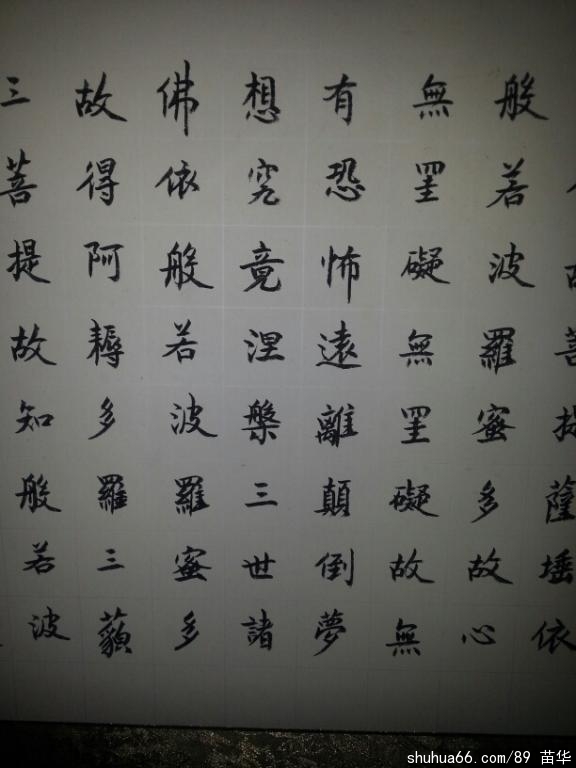 菩提薩埵依
般若波羅蜜多故心
無罣礙無罣礙故無
有恐怖遠離顛倒夢
想究竟涅槃三世諸
佛依般若波羅蜜多
故得阿耨多羅三藐
三菩提故知般若波
shuhua66.com/89 苗华